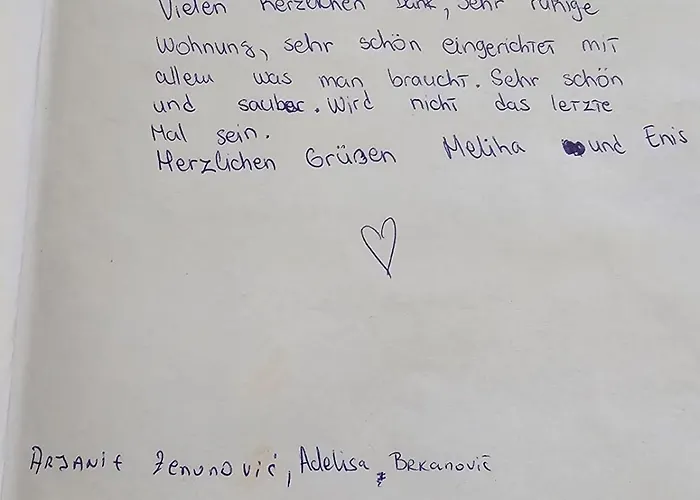 Vielen herzlichen Dank, sehr ruhige
Wohnung, sehr schön eingerichtet mit
allem was man braucht. Sehr schön
und sauber. Wird nicht das letzte
Mal sein.
Herzlichen Grüßen Meliha und Enis
Arjanit Zenunović, Adelisa Brkanović